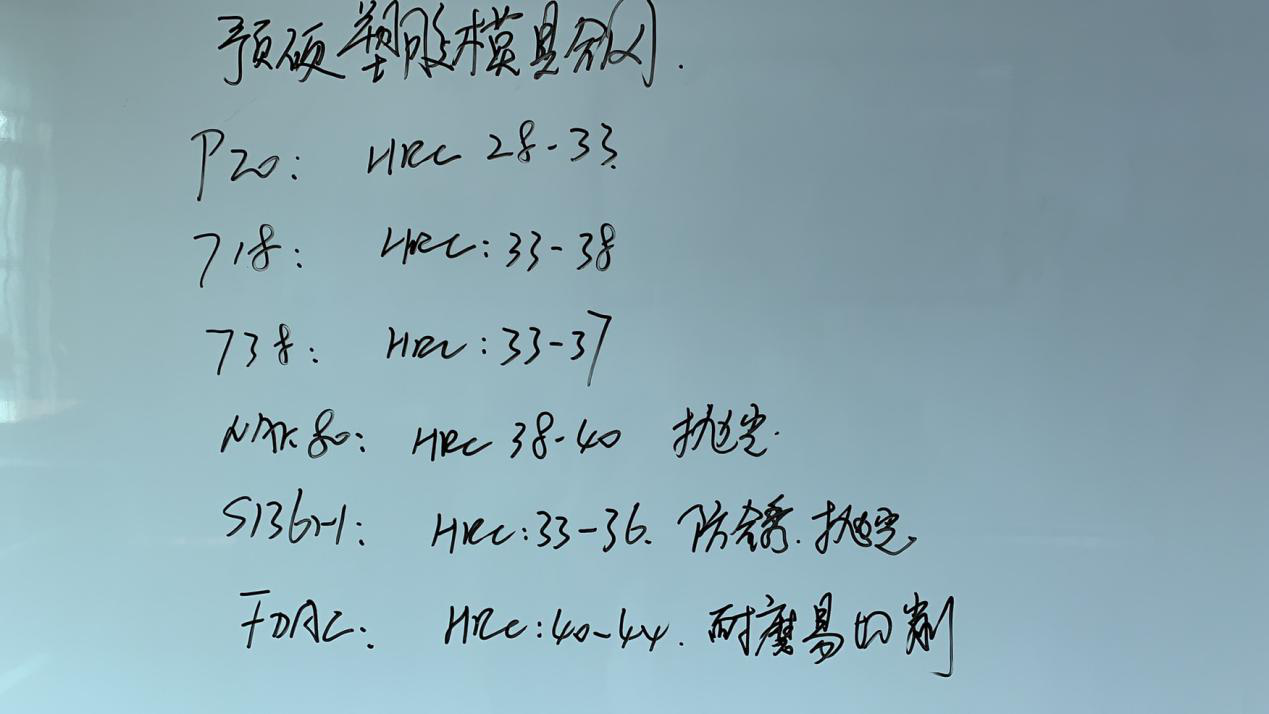 预硬塑胶模具钢.
P20: HRC 28-33.
718: HRC: 33-38
738: HRC: 33-37
NAK80: HRC 38-40 抛光.
S136H: HRC: 33-36. 防锈. 抛光.
FDAC. HRC: 40-44. 耐磨易切削